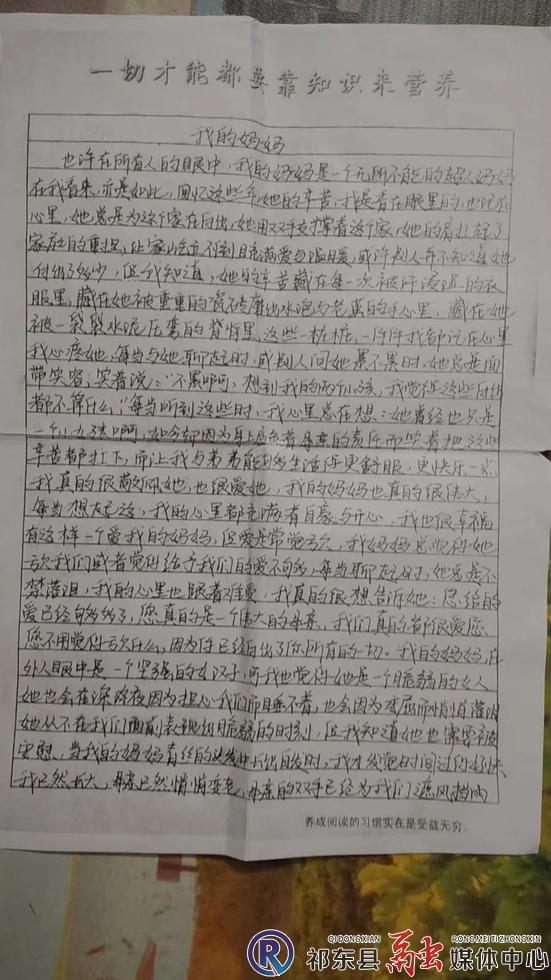 一切才能都要靠知识来营养
我的妈妈
也许在所有人的眼中，我的妈妈是一个无所不能的超人妈妈
在我看来，亦是如此，回忆这些年，她的辛苦，我是看在眼里的，也
心里，她总是为这个家在付出，她用双手支撑着这个家，她的肩扛起了
家庭的重担，让家充满爱与温暖，或许别人并不知道她
付出了多少，但我知道，她的辛苦藏在每一次被汗浸湿的衣
服里，藏在她被重重的瓷砖磨出水泡与老茧的手心里，藏在她
被一袋袋水泥压弯的背脊里，这些一桩桩，一件件我都记在心里
我心疼她，每当与她聊起时，或别人问她累不累时，她总是面
带笑容，笑着说：“不累啊，想到我的两个小孩，我觉得这些付出
都不算什么，”每当听到这些时，我心里总在想：她曾经也只是
一个小女孩啊，如今却因为身上肩负着母亲的责任而笑着把这些
辛苦都扛下，而让我与弟弟能够生活得更舒服，更快乐一点
我真的很敬佩她，也很爱她，我的妈妈也真的很伟大，
每当想起这，我的心里都充满着自豪与开心，我也很幸福
有这样一个爱我的妈妈，但爱是常觉亏欠，我妈妈总觉得她
亏欠我们或者觉得给予我们的爱不够多，每当聊起时，她总是不
禁落泪，我的心里也跟着难受，我真的很想告诉她：您给的
爱已经够多了，您真的是一个伟大的母亲，我们真的都很爱您、
您不用觉得亏欠什么，因为您已经付出了您所有的一切。我的妈妈，在
外人眼中是一个坚强的女汉子，可我也觉得她是一个脆弱的女人
她也会在深夜因为担心我们而睡不着，也会因为委屈而悄悄落泪
她从不在我们面前表现出脆弱的时刻，但我知道她也需要被
安慰，当我的妈妈青丝的头发中长出白发时，我才发觉时间过得好快
我已然长大，母亲已然悄悄变老，母亲的双手已经为我们遮风挡雨
养成阅读的习惯实在是受益无穷
QIDONGXIAN
RONGMEITIZHONGXIN
祁东县融媒体中心